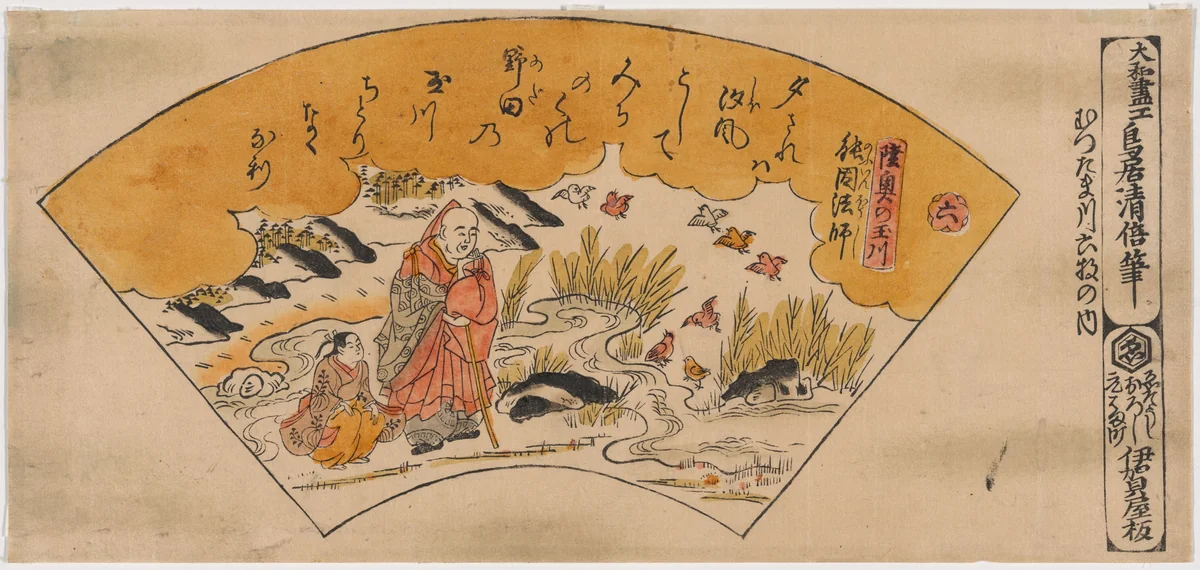 大和畫工鳥居清倍筆
おろし
伊賀屋板
むつたま川六枚の内
六
陸奥の玉川
能因法師
夕され
汐風ハ
こして
みち
のくの
野田乃
玉川
ちとり
なく
なり